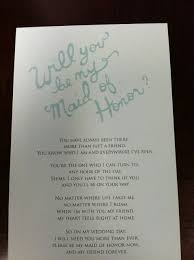 Will you
be my
Maid of
Honor?
You have always been there
more than just a friend.
You know who I am and everywhere I've been.
You're the one who I can turn to,
any hour of the day.
Seems I only have to think of you
and you'll be on your way.
No matter where life takes me
no matter where I roam,
when I'm with you my friend,
my heart feels right at home.
So on my wedding day,
I will need you more than ever.
Please be my maid of honor now,
and my friend forever.